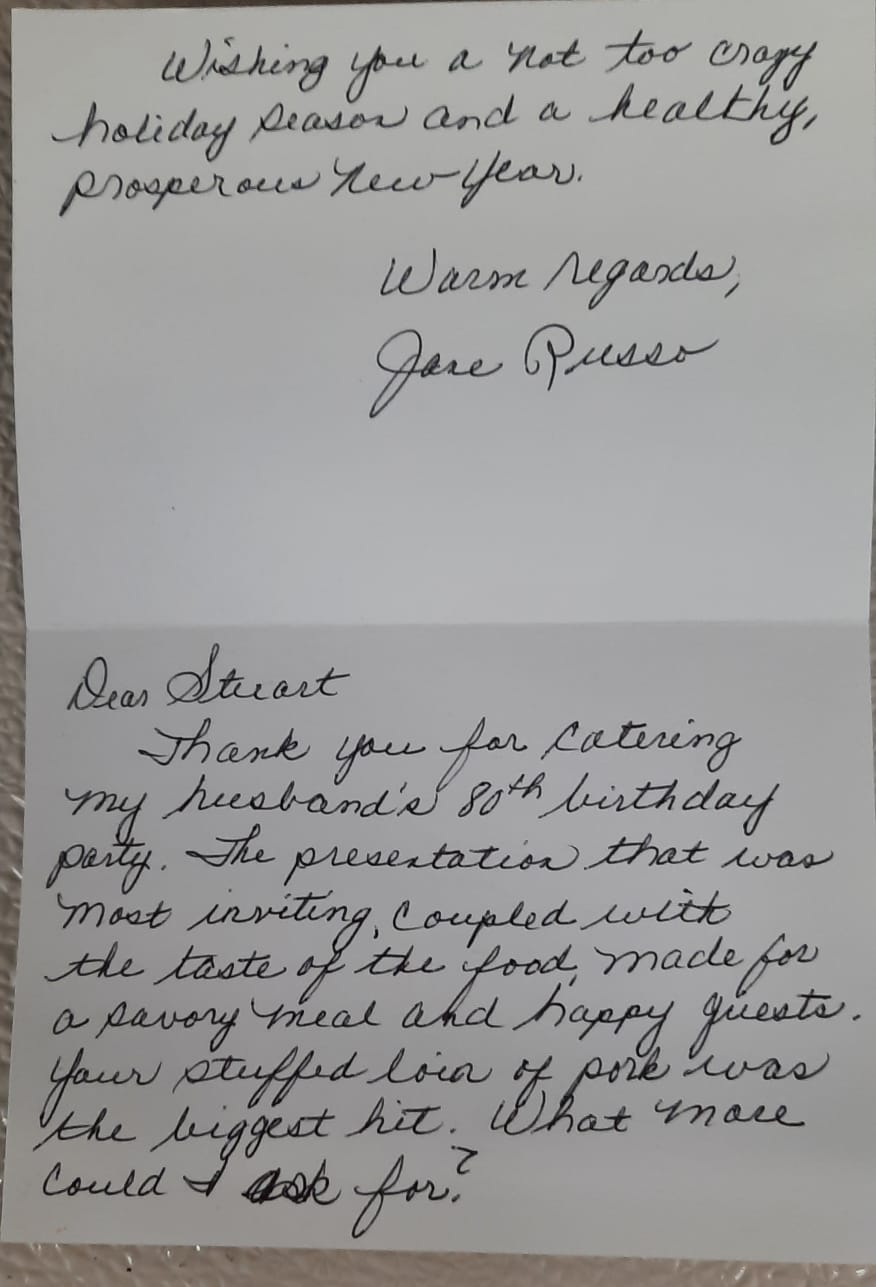 Wishing you a not too crazy
holiday season and a healthy,
prosperous New Year.
Warm regards,
Jane Russo
Dear Stuart
Thank you for catering
my husband's 80th birthday
party. The presentation that was
most inviting, coupled with
the taste of the food, made for
a savory meal and happy guests.
Your stuffed loin of pork was
the biggest hit. What more
could I ask for?